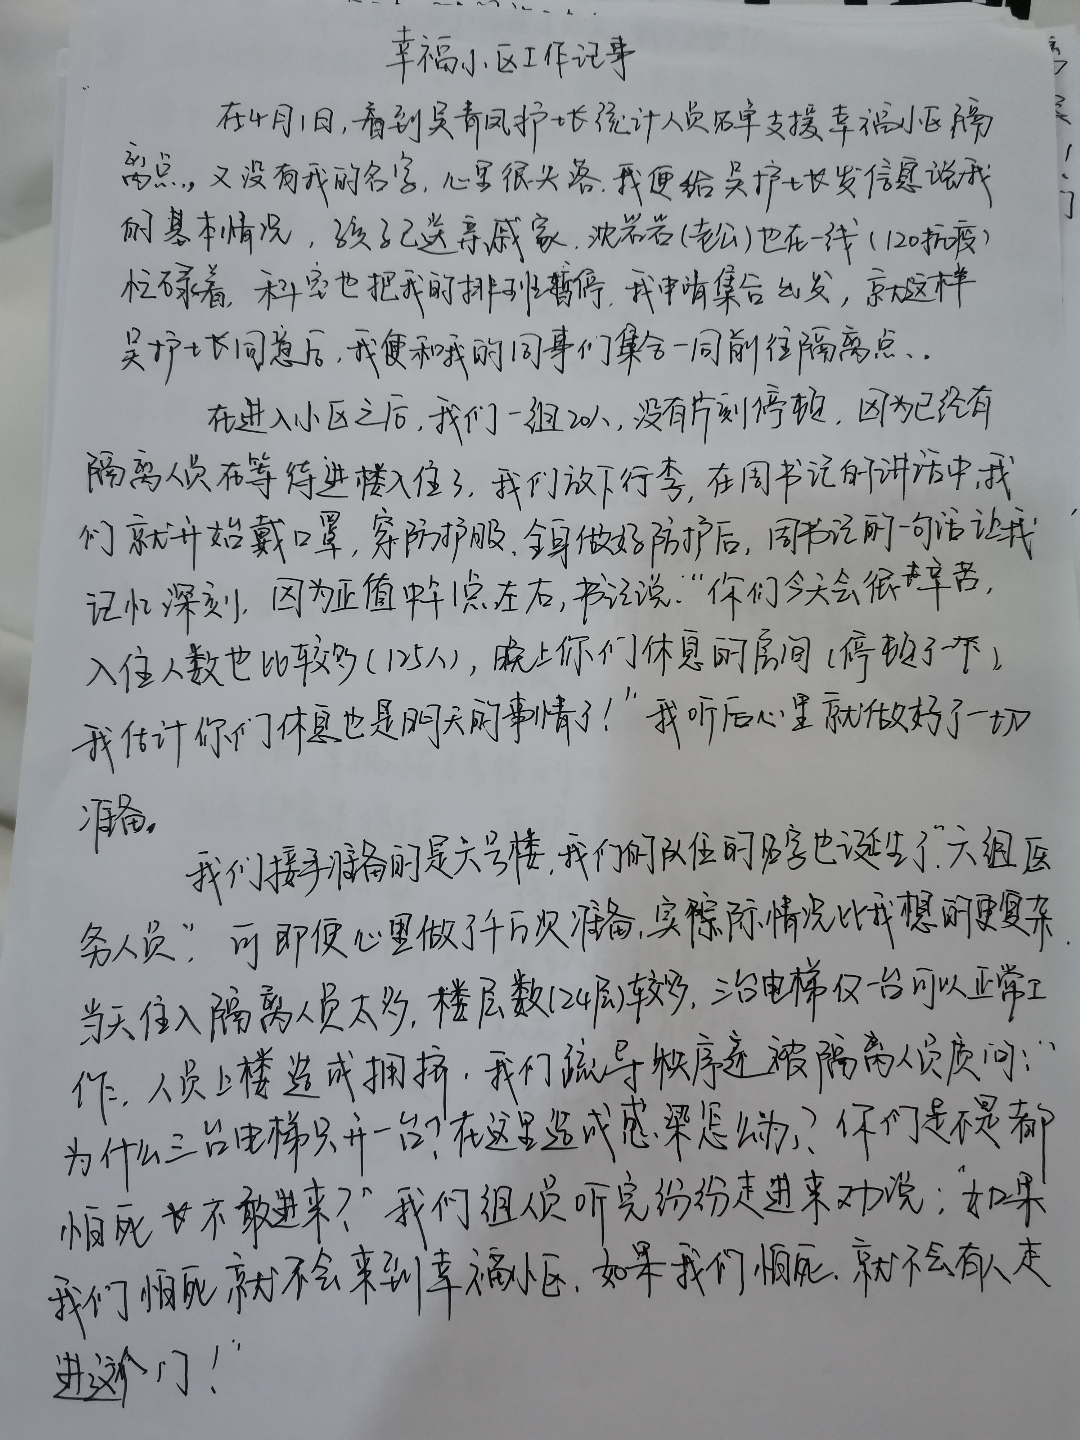 幸福小区工作记事
在4月1日,看到吴青凤护士长统计人员名单支援幸福小区隔
离点,又没有我的名字,心里很失落.我便给吴护士长发信息说我
的基本情况,孩子已送亲戚家.沈岩岩(老公)也在一线(120抗疫)
忙碌着,科室也把我的排班暂停,我申请集合出发,就这样
吴护士长同意后,我便和我的同事们集合一同前往隔离点..
在进入小区之后,我们一组20人,没有片刻停顿.因为已经有
隔离人员在等待进楼入住了.我们放下行李,在周书记的讲话中,我
们就开始戴口罩,穿防护服、全身做好防护后,周书记的一句话让我
记忆深刻.因为正值中午1点左右,书记说:“你们今天会很辛苦,
入住人数也比较多(125人),晚上你们休息的房间(停顿了一下)
我估计你们休息也是明天的事情了!”我听后心里就做好了一切
准备。
我们接手准备的是六号楼,我们的队伍的名字也诞生了“六组医
务人员”.可即便心里做了千百次准备,实际情况比我想的更复杂.
当天住入隔离人员太多,楼层数(24层)较多,三台电梯仅一台可以正常工
作,人员上楼造成拥挤.我们疏导秩序还被隔离人员质问:“
为什么三台电梯只开一台?在这里造成感染怎么办?你们是不是都
怕死不敢进来?”我们组人员听完纷纷走进来劝说:“如果
我们怕死就不会来到幸福小区.如果我们怕死.就不会有人走
进这个门!”